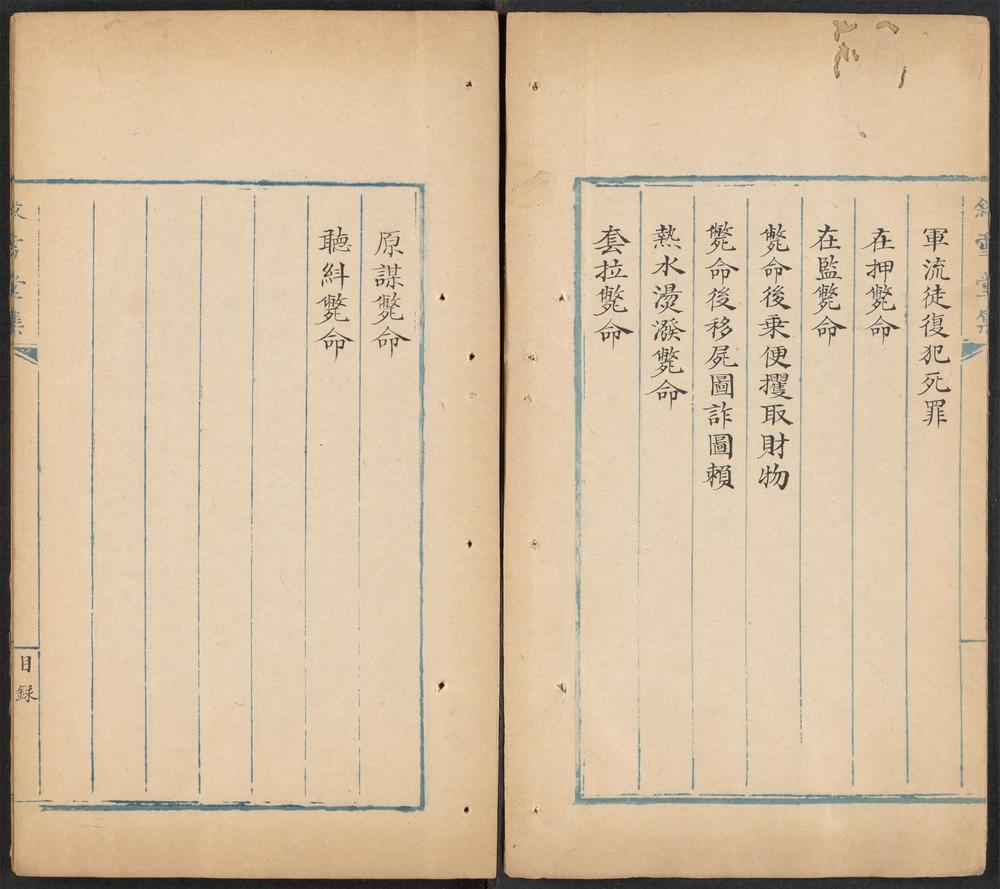 軍流徒復犯死罪
在押斃命
在監斃命
斃命後乘便攫取財物
斃命後移屍圖詐圖賴
熱水燙潑斃命
套拉斃命
原謀斃命
聽糾斃命
堂集
目録